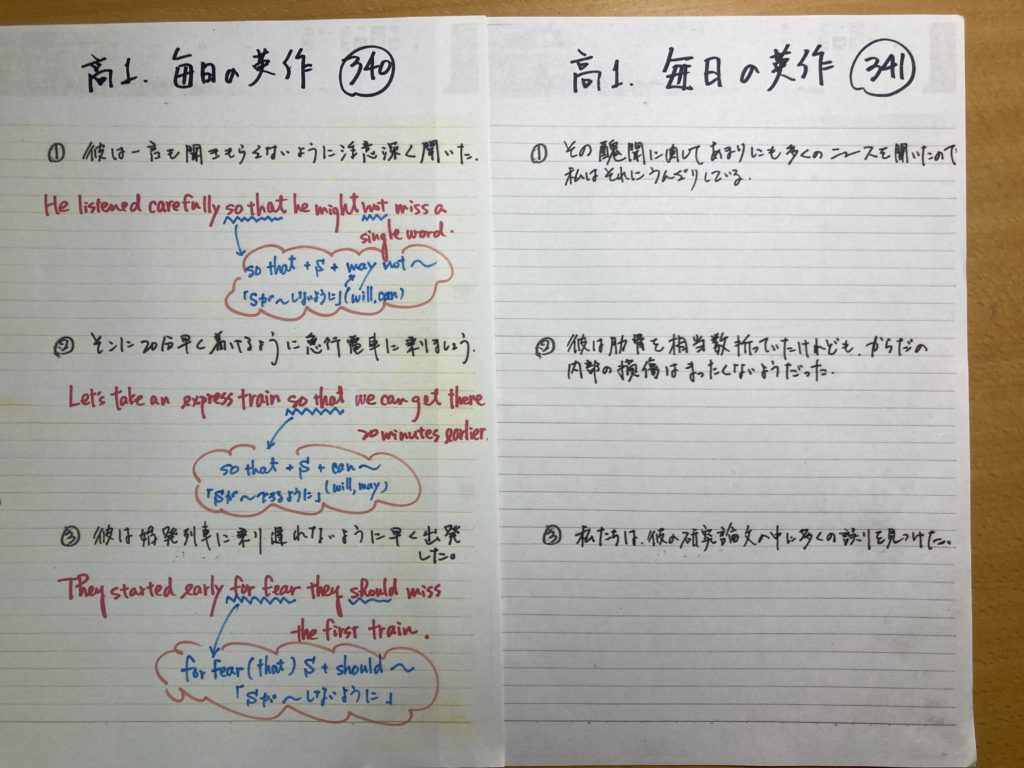 高1. 毎日の英作 340
① 彼は一言も聞きもらさないように注意深く聞いた.
He listened carefully so that he might not miss a
single word.
so that + S + may not ～
「Sが～しないように」(will, can)
② そこに20分早く着けるように急行電車に乗りましょう.
Let's take an express train so that we can get there
20 minutes earlier.
so that + S + can ～
「Sが～できるように」(will, may)
③ 彼は始発列車に乗り遅れないように早く出発
した。
They started early for fear they should miss
the first train.
for fear (that) S + should ～
「Sが～しないように」
高1. 毎日の英作 341
① その醜聞に関してあまりにも多くのニュースを聞いたので
私はそれにうんざりしている.
② 彼は肋骨を相当数折っていたけれども、からだの
内部の損傷はまったくないようだった.
③ 私たちは、彼の研究論文の中に多くの誤りを見つけた.